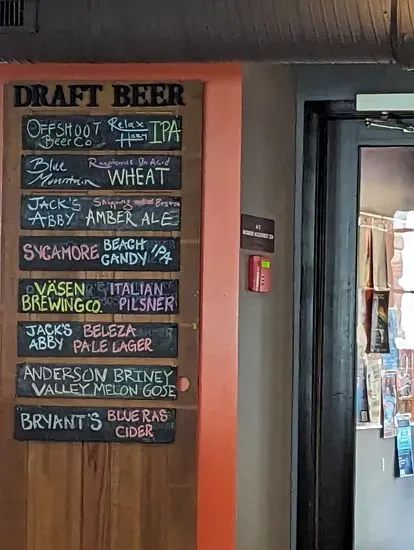 DRAFT BEER
OFFSHOOT Relax IPA
Beer Co Hazy
Blue Raspberries On Acid
Mountain WHEAT
JACK'S Shipping
ABBY AMBER ALE
SYCAMORE BEACH IPA
CANDY
VÄSEN ITALIAN
BREWING CO. PILSNER
JACK'S BELEZA
ABBY PALE LAGER
ANDERSON BRINEY
VALLEY MELON GOSE
BRYANT'S BLUE RAS
CIDER